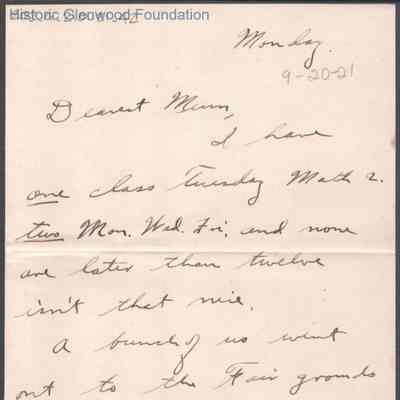 Historic Glenwood Foundation
Monday.
9-20-21
Dearest Mum,
I have
one class Tuesday Math 2.
two Mon. Wed. Fri. and none
are later than twelve
isn't that nice.
A bunch of us went
out to the Fair grounds